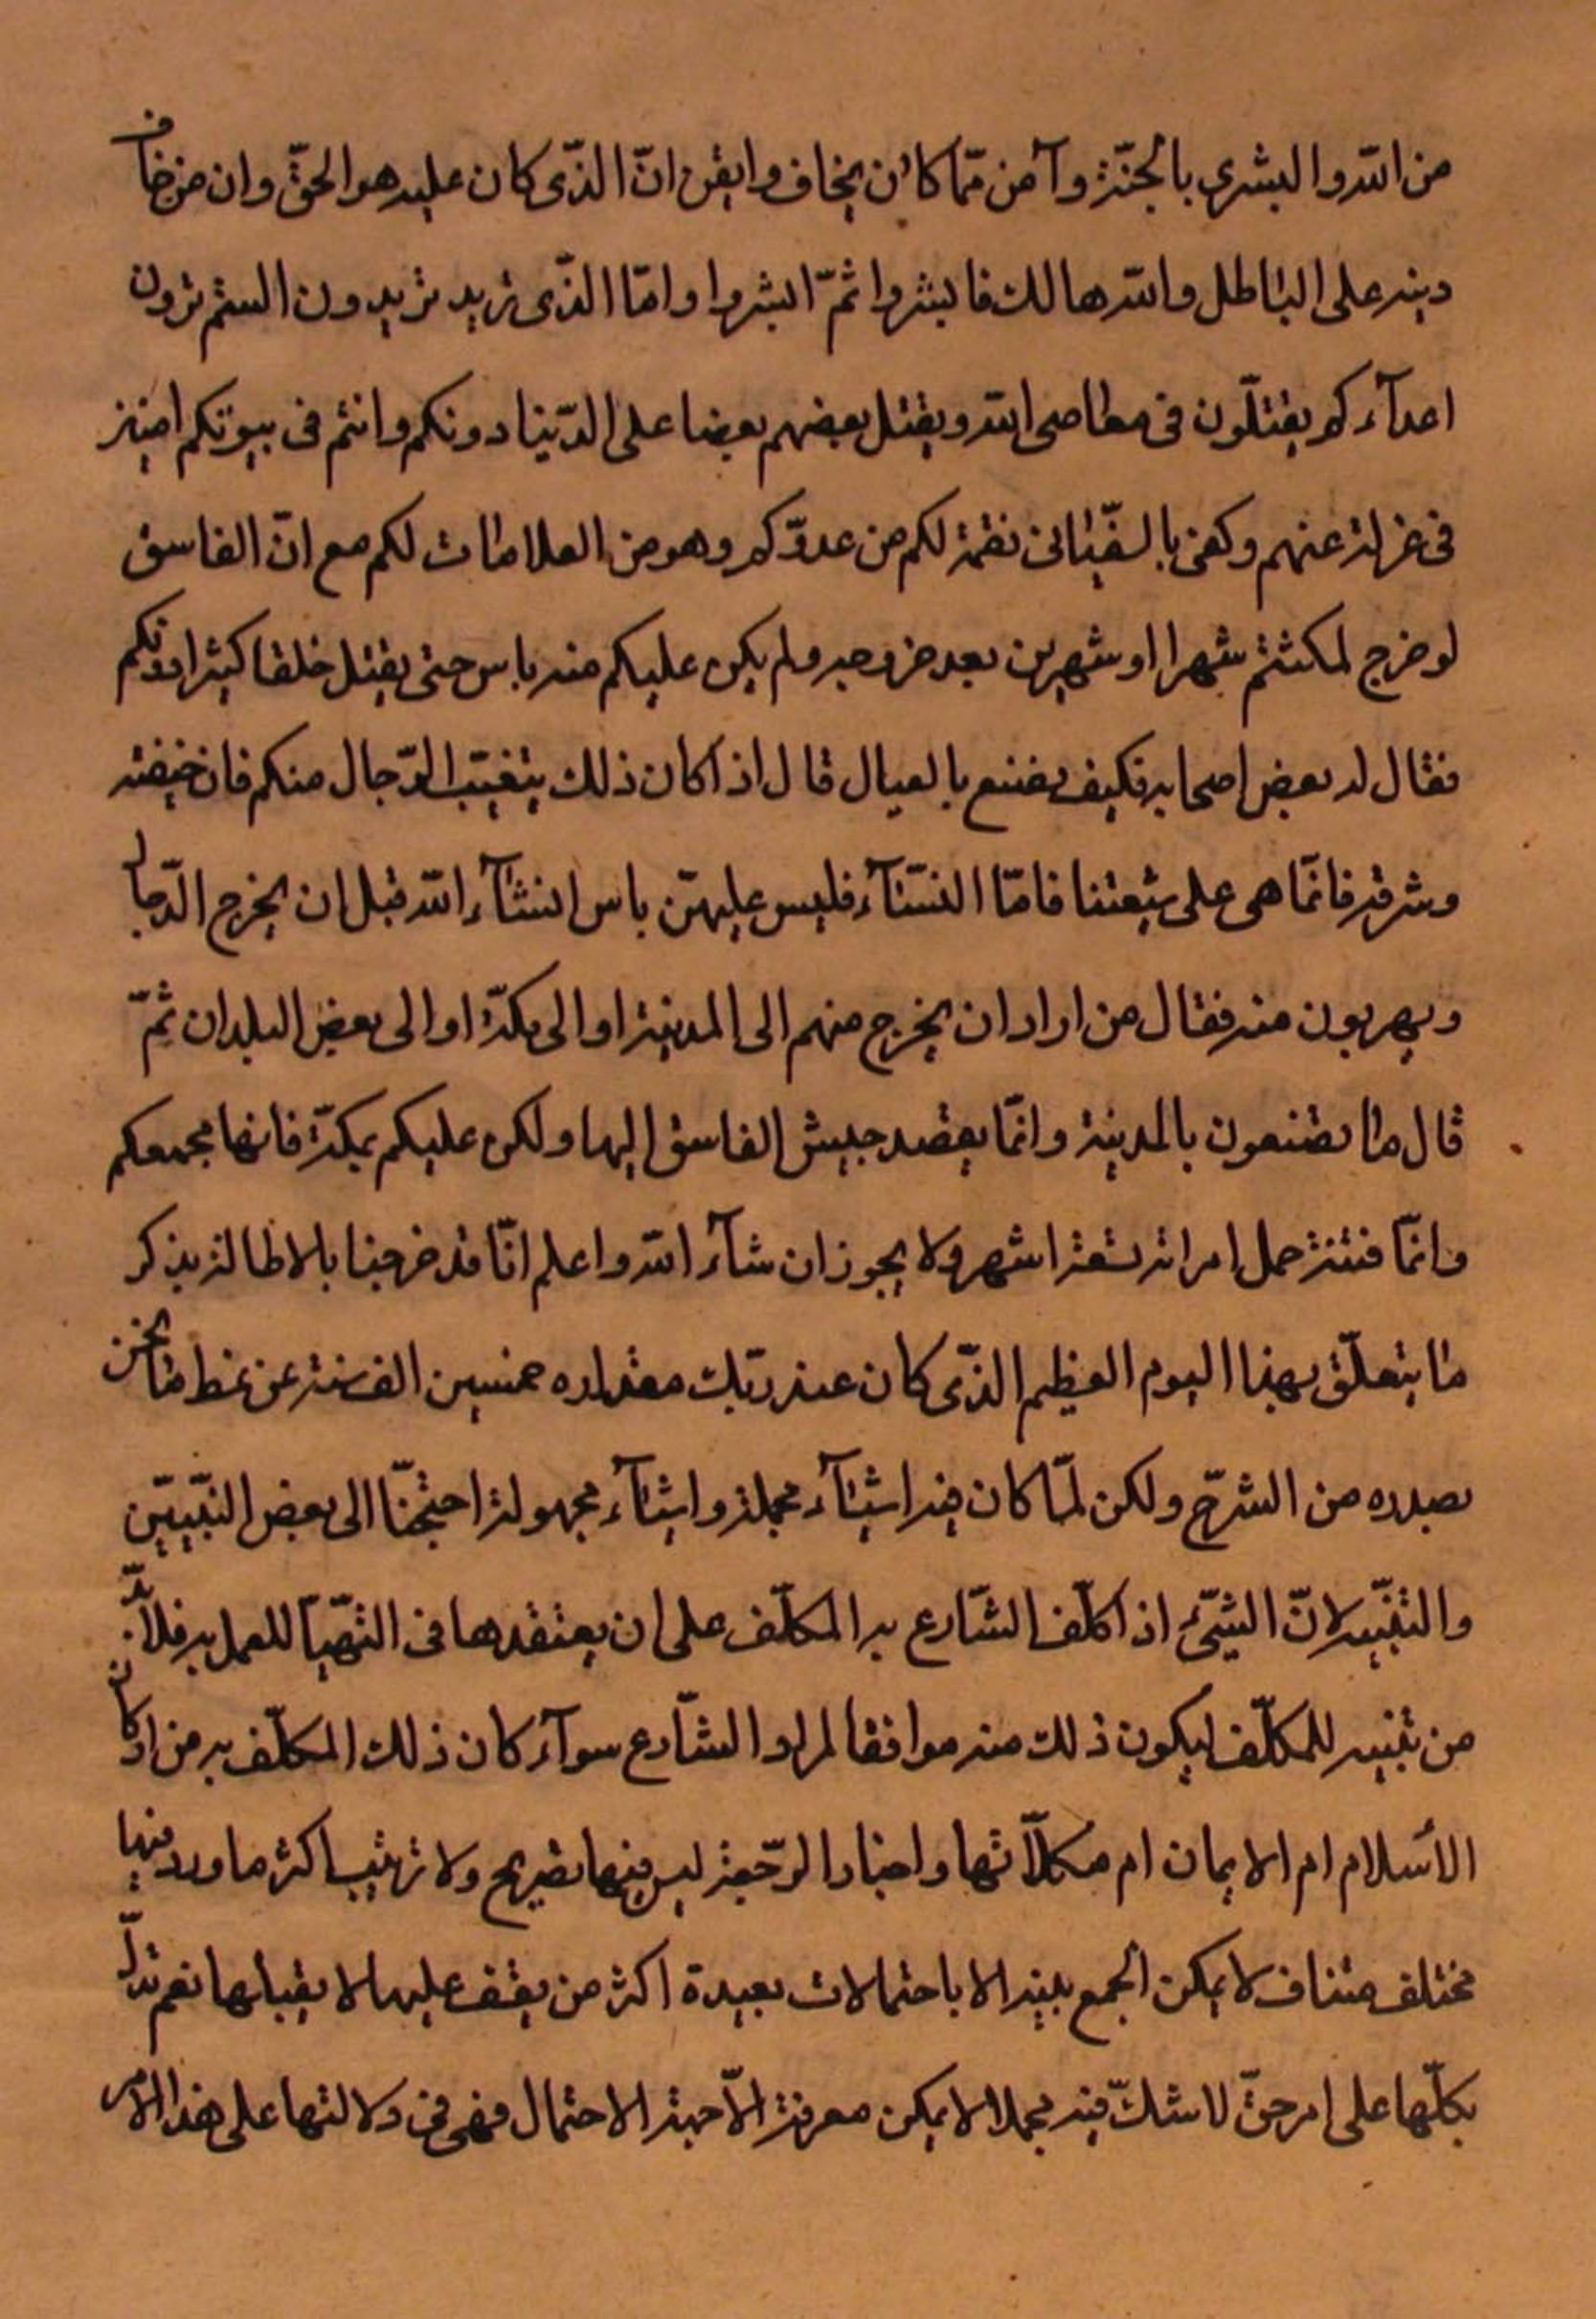 من الله والبشرى بالجنّة وآمن ممّا كان يخاف وايقن انّ الذّى كان عليه هو الحقّ وان من خالف
دينه على الباطل وانّه هالك فابشروا ثمّ ابشروا وامّا الذّى تريد تريدون الستم ترون
اعدآءكم يقتلون فى معاصى الله ويقتل بعضهم بعضا على الدّنيا دونكم وانتم فى بيوتكم امنين
فى عزلة عنهم وكفى بالسفّيانى نقمة لكم من عدوّكم وهو من العلامات لكم مع انّ الفاسق
لو خرج لمكثتم شهرا او شهرين بعد خروجه ولم يكن عليكم منه باس حتى يقتل خلقا كثيرا دونكم
فقال له بعض اصحابه فكيف يصنع بالعيال قال اذا كان ذلك يتغيّب الرّجال منكم فان خيفته
وشرته فانمّا هى على شيعتنا فامّا النسّآء فليس عليهنّ باس انشآء الله قبل ان يخرج الدّجال
ويهربون منه فقال من اراد ان يخرج منهم الى المدينة او الى مكّة او الى بعض البلدان ثمّ
قال ما تصنعون بالمدينة وانمّا يقصد جيش الفاسق اليها ولكن عليكم بمكّة فانها مجمعكم
وانمّا فتنته حمل امراته تسعة اشهر ولا يجوز ان شآء الله واعلم انّا قد خرجنا بالاطالة بذكر
ما يتعلّق بهذا اليوم العظيم الذّى كان عند ربّك مقداره خمسين الف سنة عن نمط ما نحن
بصدده من الشرّح ولكن لمّا كان فيه اشيآء مجملة واشيآء مجهولة احتجنّا الى بعض التبّيين
والتنبّيه لانّ الشّئ اذا كلّف الشّارع به المكلّف على ان يعتقدها فى التهّيأ للعمل به فلا بدّ
من تنبيه للمكلّف ليكون ذلك منه موافقا لمراد الشّارع سوآء كان ذلك المكلّف به من اركان
الاسلام ام الايمان ام مكملّاتها واخبار الرجّعة ليس فيها تصريح ولا ترتيب اكثر ما ورد فيها
مختلف متناف لا يمكن الجمع بينه الا باحتمالات بعيدة اكثر من يقف عليها لا يقبلها نعم تدلّ
بكلّها على امر حقّ لا شكّ فيه مجملا لا يمكن معرفة الّا جهة الاحتمال فهى فى دلالتها على هذا الامر